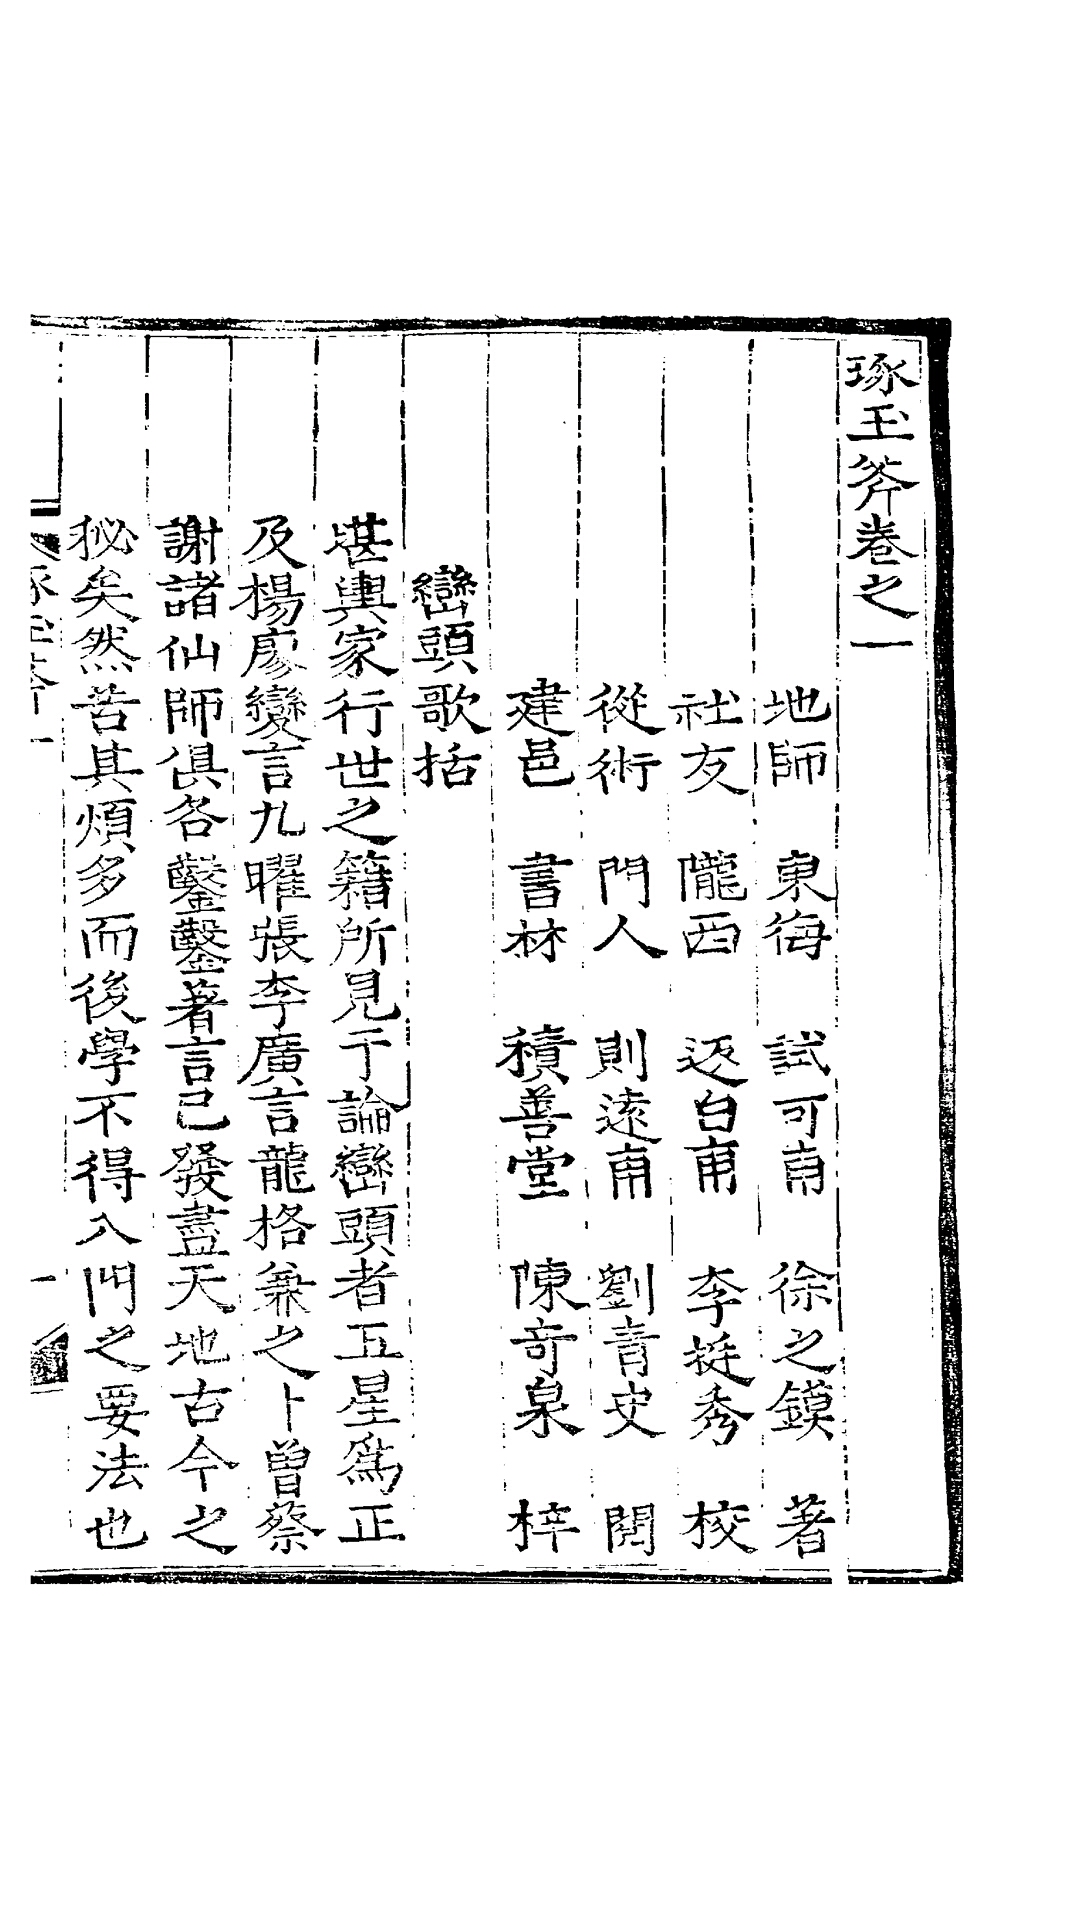 琢玉斧卷之一
地師 東海 試可甫 徐之鏌 著
社友 隴西 返台甫 李挺秀 校
從術 門人 則遠甫 劉青史 閲
建邑 書林 積善堂 陳奇泉 梓
巒頭歌括
堪輿家行世之籍所見于論巒頭者五星爲正
及楊廖變言九曜張李廣言龍格兼之卜曾蔡
謝諸仙師俱各鑿鑿著言已發盡天地古今之
秘矣然苦其煩多而後學不得入門之要法也
琢玉斧 一